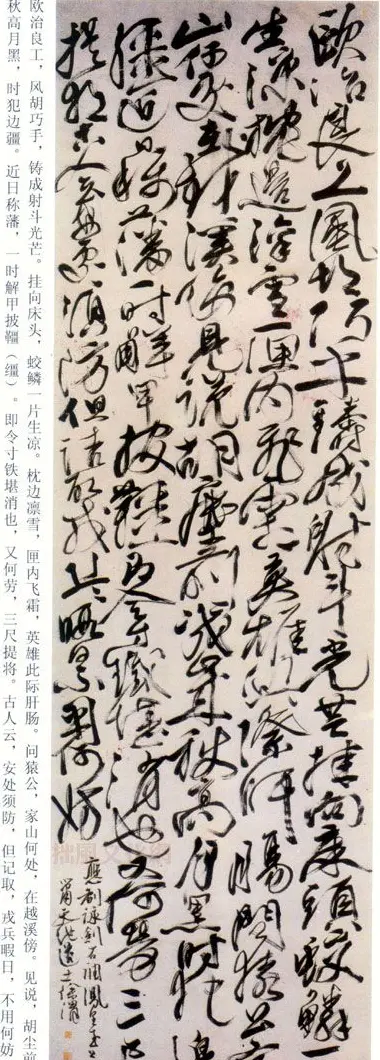 歐冶良工風胡巧手鑄成射斗光芒挂向床頭蛟鱗一
生涼枕邊凜雪匣内飛霜英雄此際肝腸問猿公家
山何處在越溪傍見說胡塵前歲秋高月黑時犯邊
疆近日稱藩一時解甲披韁即令寸鐵堪消也又何勞三尺
提將古人云安處須防但記取戎兵暇日不用何妨
應制詠劍右調鳳凰臺上
天池道士徐渭
欧治良工，风胡巧手，铸成射斗光芒。挂向床头，蛟鳞一片生凉。枕边凛雪，匣内飞霜，英雄此际肝肠。问猿公，家山何处，在越溪傍。见说，胡尘前
秋高月黑，时犯边疆。近日称藩，一时解甲披韁（缰）。即令寸铁堪消也，又何劳，三尺提将。古人云，安处须防，但记取，戎兵暇日，不用何妨